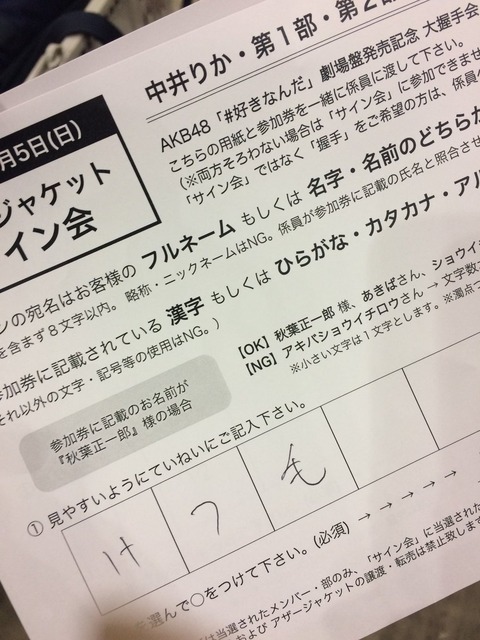 中井りか・第1部・第2部
AKB48「#好きなんだ」劇場盤発売記念 大握手会
こちらの用紙と参加券を一緒に係員に渡して下さい。
(※両方そろわない場合は「サイン会」に参加できませ
「サイン会」ではなく「握手」をご希望の方は、係員
月5日(日)
ジャケット
イン会
ンの宛名はお客様の フルネーム もしくは 名字・名前のどちらか
を含まず8文字以内。 略称・ニックネームはNG。係員が参加券に記載の氏名と照合させ
参加券に記載されている 漢字 もしくは ひらがな・カタカナ・アル
それ以外の文字・記号等の使用はNG。)
【OK】秋葉正一郎 様、あきばさん、ショウイチ
【NG】アキバショウイチロウさん → 文字数
※小さい文字は1文字とします。※濁点
参加券に記載のお名前が
『秋葉正一郎』様の場合
① 見やすいようにていねいにご記入下さい。
けつも
を選んで○をつけて下さい。(必須) → → → → →
は当選されたメンバー・部のみ、「サイン会」に当選された
およびアザージャケットの譲渡・転売は禁止致します